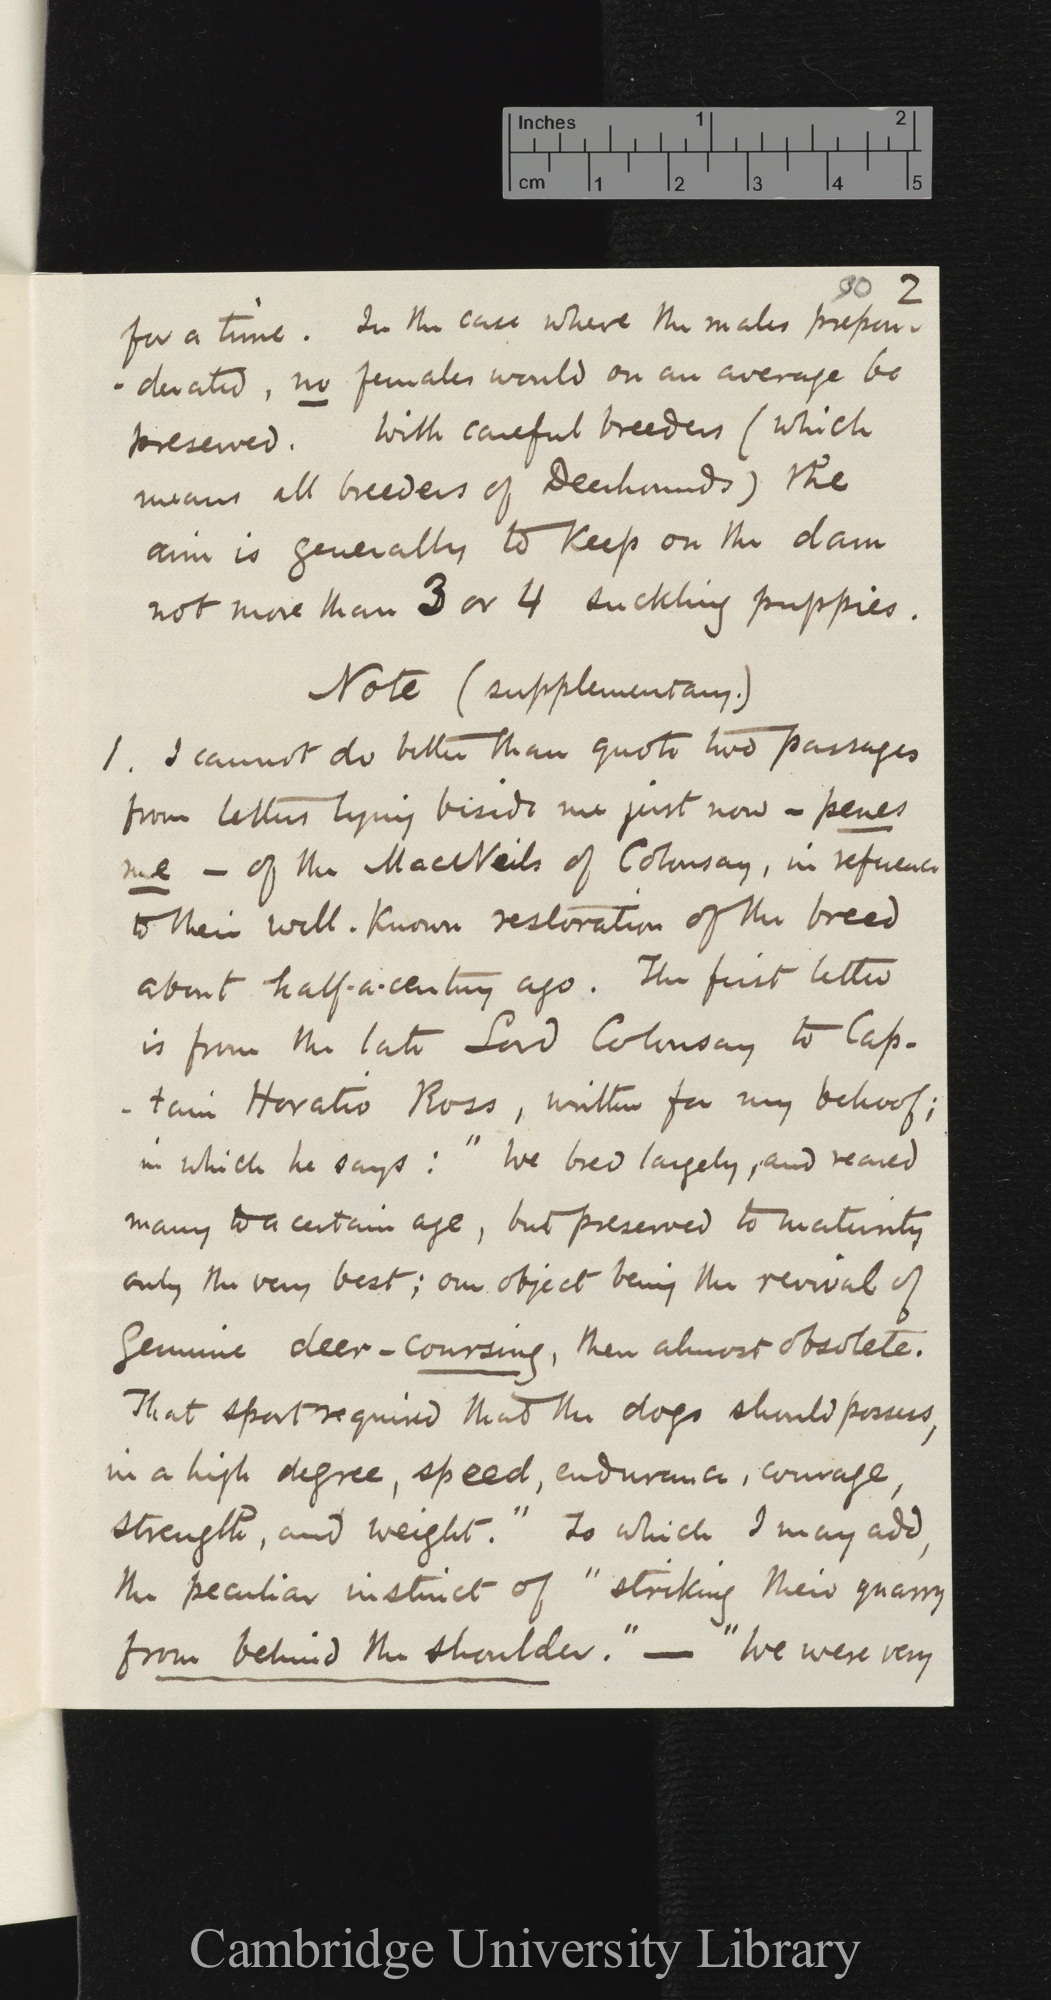 Inches 1 2
cm 1 2 3 4 5
90 2
for a time. In the case where the males prepon-
-derated, no females would on an average be
preserved. With careful breeders (which
means all breeders of Deerhounds) the
aim is generally to keep on the dam
not more than 3 or 4 suckling puppies.
Note (supplementary.)
1. I cannot do better than quote two passages
from letters lying beside me just now - penes
me - of the MacNeils of Colonsay, in reference
to their well-known restoration of the breed
about half-a-century ago. The first letter
is from the late Lord Colonsay to Cap-
-tain Horatio Ross, written for my behoof;
in which he says: "We bred largely, and reared
many to a certain age, but preserved to maturity
only the very best; our object being the revival of
genuine deer-coursing, then almost obsolete.
That sport required that the dogs should possess,
in a high degree, speed, endurance, courage,
strength, and weight." To which I may add,
the peculiar instinct of "striking their quarry
from behind the shoulder." — "We were very
Cambridge University Library